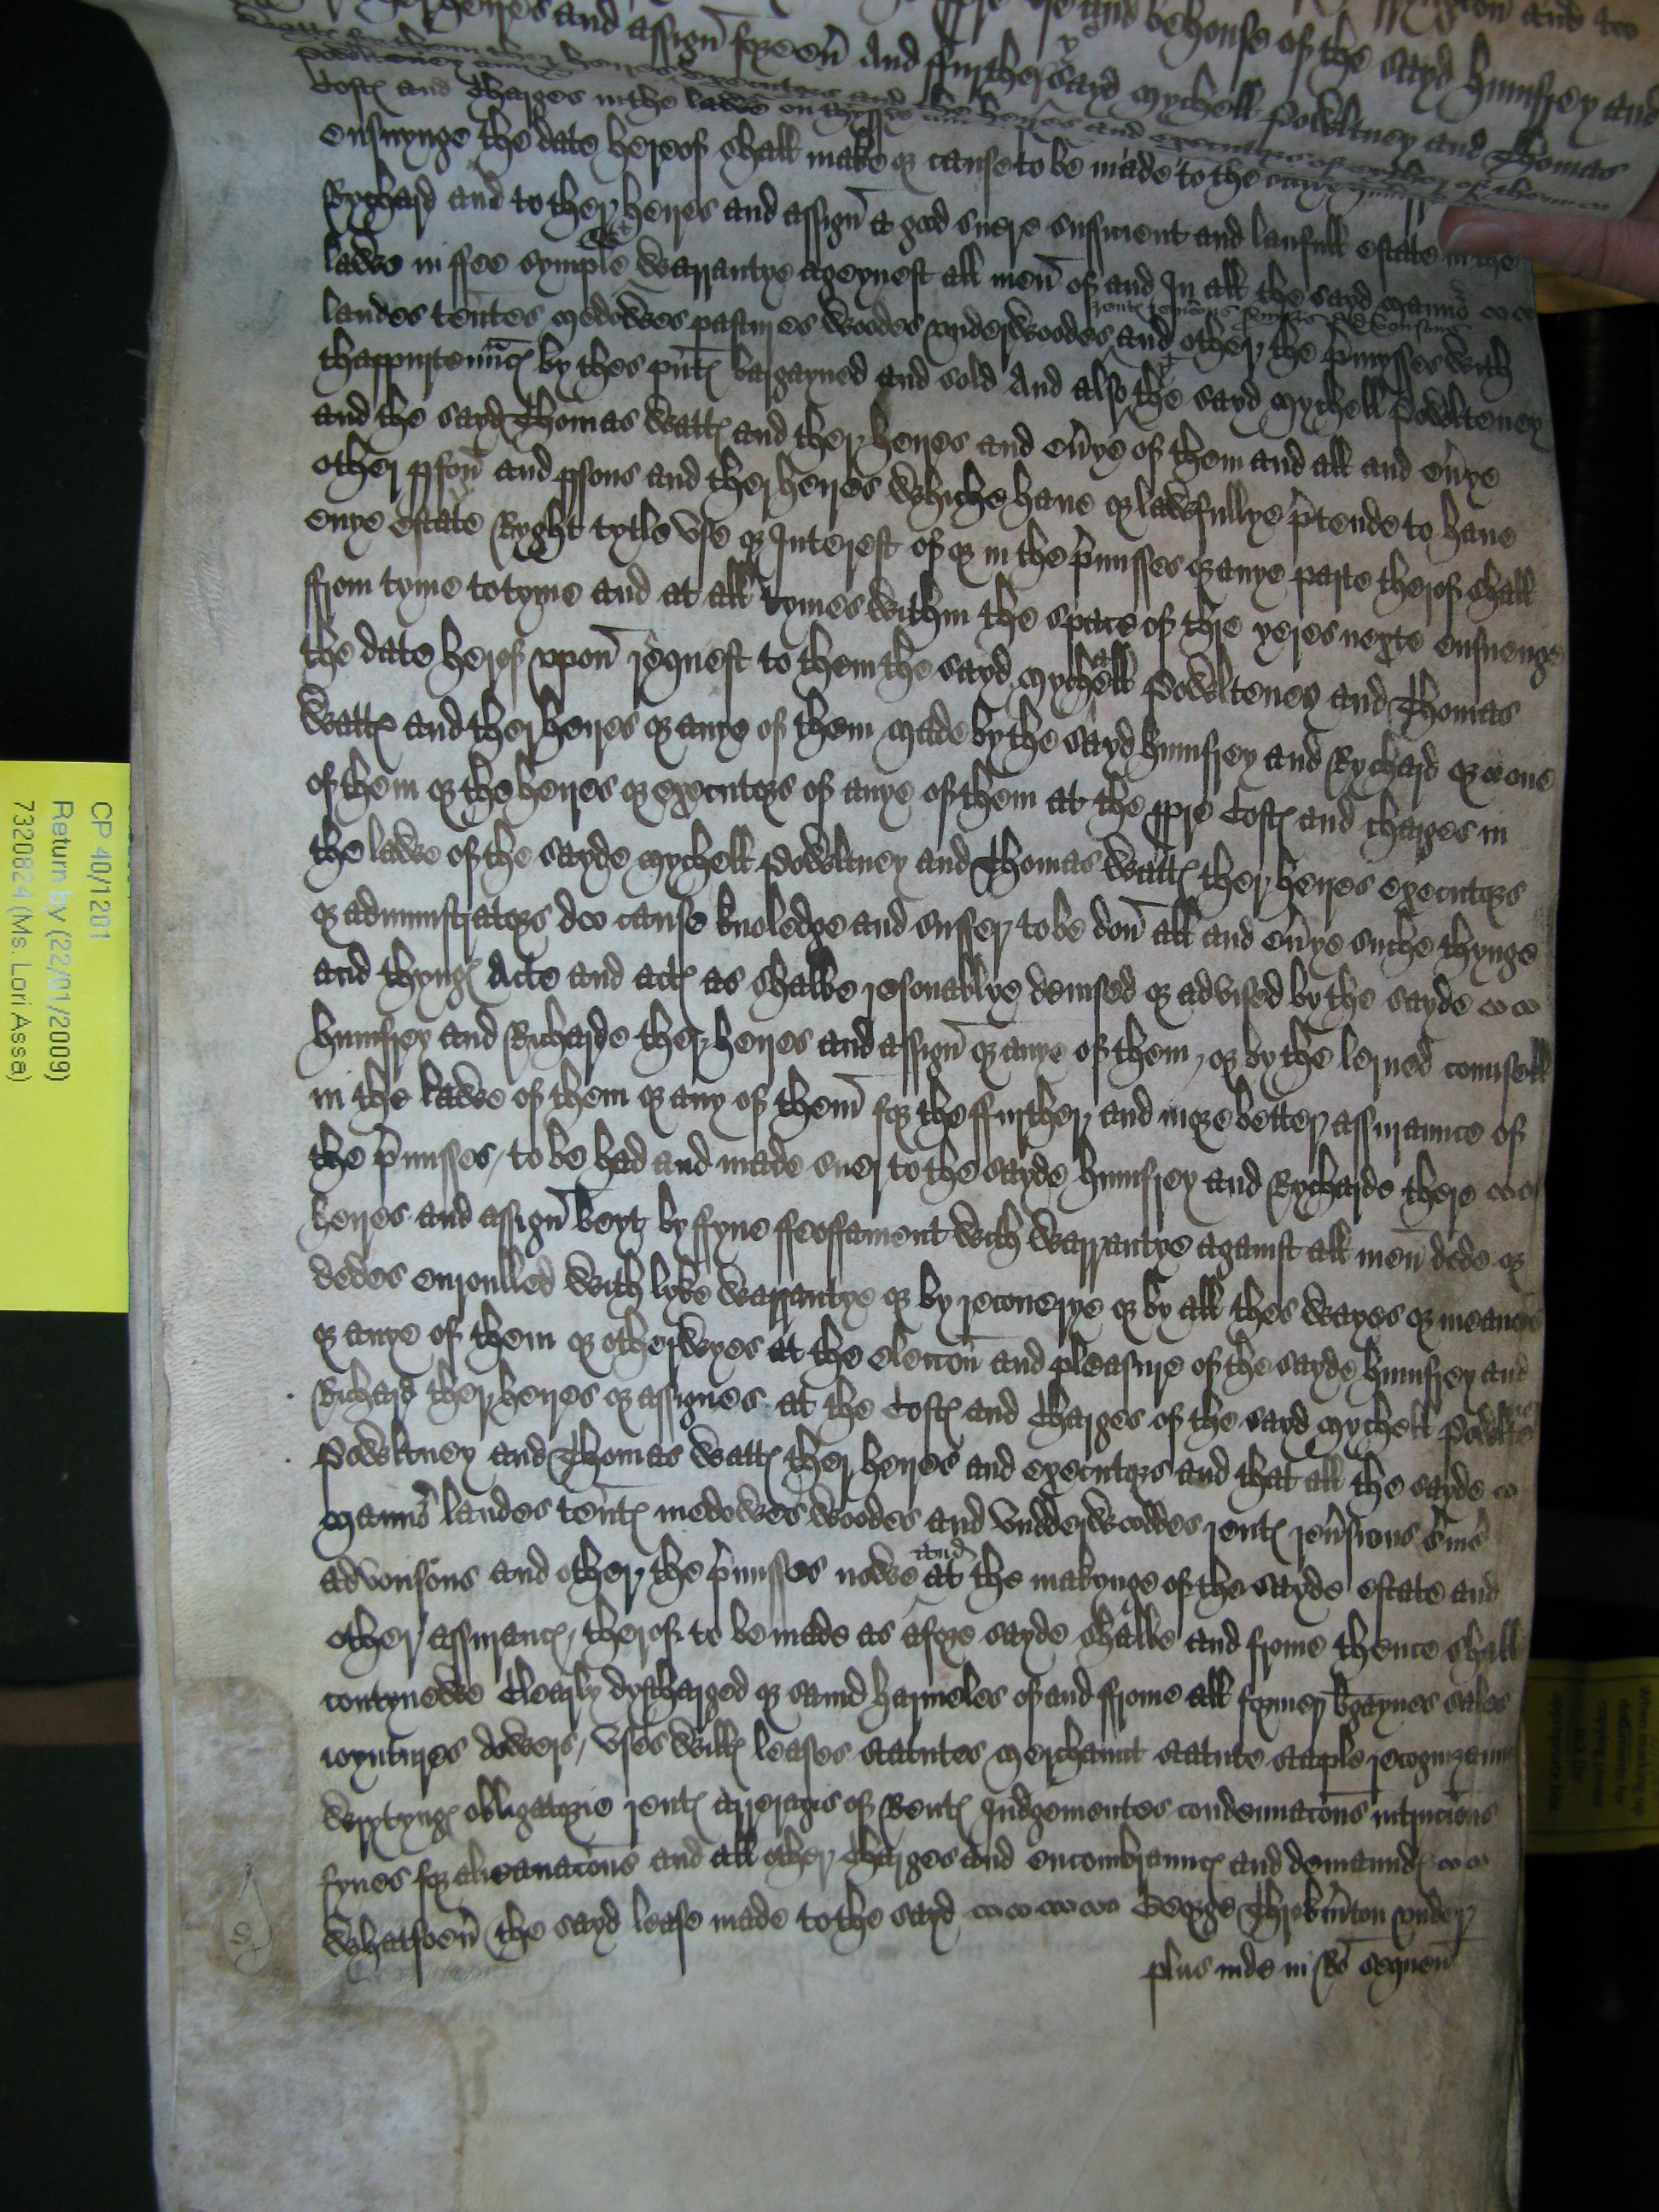 heyres and assign̄ foreū And ffurther y^t
and behouse of the sayd humfrey and
sayd mychell Powltney and Thomas
Costꝭ and Charges in the lawe
ensuynge the date hereof shall make or cause to be made to the
Rychard and to ther heyres and assign̄ a good suere sufficient and laufull estate in the
lawe in ffee symple w^t warrantye ageynest all men̄ of and In all the sayd mann͛
rentꝭ s͛uices advousons
landes teñtes medowes pastures woodes vnderwoodes and other the p͛mysses with
thappurten̄ncꝭ by thes pn̄tꝭ bargayned and sold And also y^t the sayd mychell Powlteney
and the sayd Thomas Wattꝭ and ther heyres and eu͛ye of them and all and eu͛ye
other ꝑson̄ and ꝑsons and ther heyres whiche haue or lawfullye p͛tende to haue
enye estate Ryght tytle vse or Interest of or in the p͛misses or anye parte therof shall
ffrom tyme to tyme and at all tymes within the space of thre yeres nexte ensuenge
the date herof vpon̄ request to them the sayd mychell Powlteney and Thomas
Wattꝭ and ther heyres or anye of them made by the sayd humfrey and Rychard or one
of them or the heyres or executors of anye of them at the ꝓpre Costꝭ and charges in
the lawe of the sayde mychell Powltney and Thomas Wattꝭ ther heyres executors
or administrators doo cause knoledge and suffer to be don̄ all and eu͛ye suche thynge
and thyngꝭ Acte and actꝭ as shalbe resonablye deuised or advised by the sayde
humfrey and Richarde ther heyres and assign̄ or anye of them, or by the lerned counsell
in the lawe of them or any of them̄ for the ffurther and more better assuraunce of
the p͛misses, to be had and made suer to the sayde humfrey and Rycharde there
heyres and assign̄ beyt by ffyne ffeoffament with warrantye against all men̄ dede or
dedes enroulled with lyke warrantye or by recouerye or by all thes wayes or meanes
or anye of them or otherwyes at the eleccōn and pleasure of the sayde humfrey and
Richard ther heyres or assignes at the Costꝭ and Charges of the sayd mychell
Powltney and Thomas Wattꝭ ther heyres and executors and that all the sayde
mann͛ landes teñtꝭ medowes woodes and vndderwoddes rentꝭ reu͛sions s͛uic͛
advonsons and other the p͛misses nowe and at the makynge of the sayde estate and
other assurancꝭ, therof to be made as afore sayde shalbe and frome thence shall
contynewe Clearly dyscharged or saued harmeles of and ffrome all former b͛gaynes sales
ioyntures dowers, vses willꝭ leases statutes merchaunt statute staple recognizaun
wrytyngꝭ obligatorie rentꝭ arreragis of Rentꝭ Iudgementes condemnacōns intrucions
fynes for alieanacōns and all other Charges and encombrauncꝭ and demaundꝭ
whatsoeu͛ the sayd lease made to the sayd George Throkm͛ton vnder
plus inde in Ro͛ sequen̄
CP 40/1201
Return by (22/01/2009)
7320824 (Ms. Lori Assa)